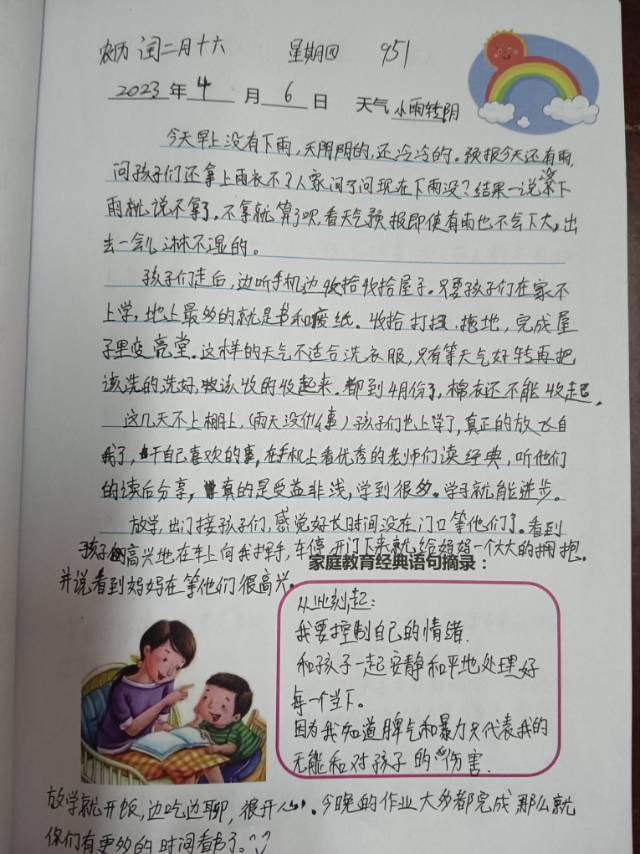 农历 闰二月十六 星期四 951
2023年4月6日 天气 小雨转阴
今天早上没有下雨,天阴阴的,还冷冷的。预报今天还有雨,
问孩子们还拿上雨衣不?人家问了问现在下雨没?结果一说没下
雨就说不拿了。不拿就算了呗,看天气预报即使有雨也不会下大,出
去一会儿淋不湿的。
孩子们走后,边听手机边收拾收拾屋子。只要孩子们在家不
上学,地上最多的就是书和废纸。收拾打扫,拖地,完成屋
子里变亮堂。这样的天气不适合洗衣服,只有等天气好转再把
该洗的洗好,该收的收起来。都到4月份了,棉衣还不能收起。
这几天不上棚上,(雨天没什么事)孩子们也上学了,真正的放飞自
我了,干自己喜欢的事,在手机上看优秀的老师们读经典,听他们
的读后分享,真的是受益非浅,学到很多。学习就能进步。
放学,出门接孩子们,感觉好长时间没在门口等他们了。看到
孩子们高兴地在车上向我挥手,车停开门下来就给妈妈一个大大的拥抱。
并说看到妈妈在等他们很高兴。
家庭教育经典语句摘录:
从此刻起:
我要控制自己的情绪.
和孩子一起安静和平地处理好
每一个当下。
因为我知道脾气和暴力只代表我的
无能和对孩子的伤害.
放学就开饭,边吃边聊,很开心。今晚的作业大多都完成那么就
你们有更多的时间看书了。